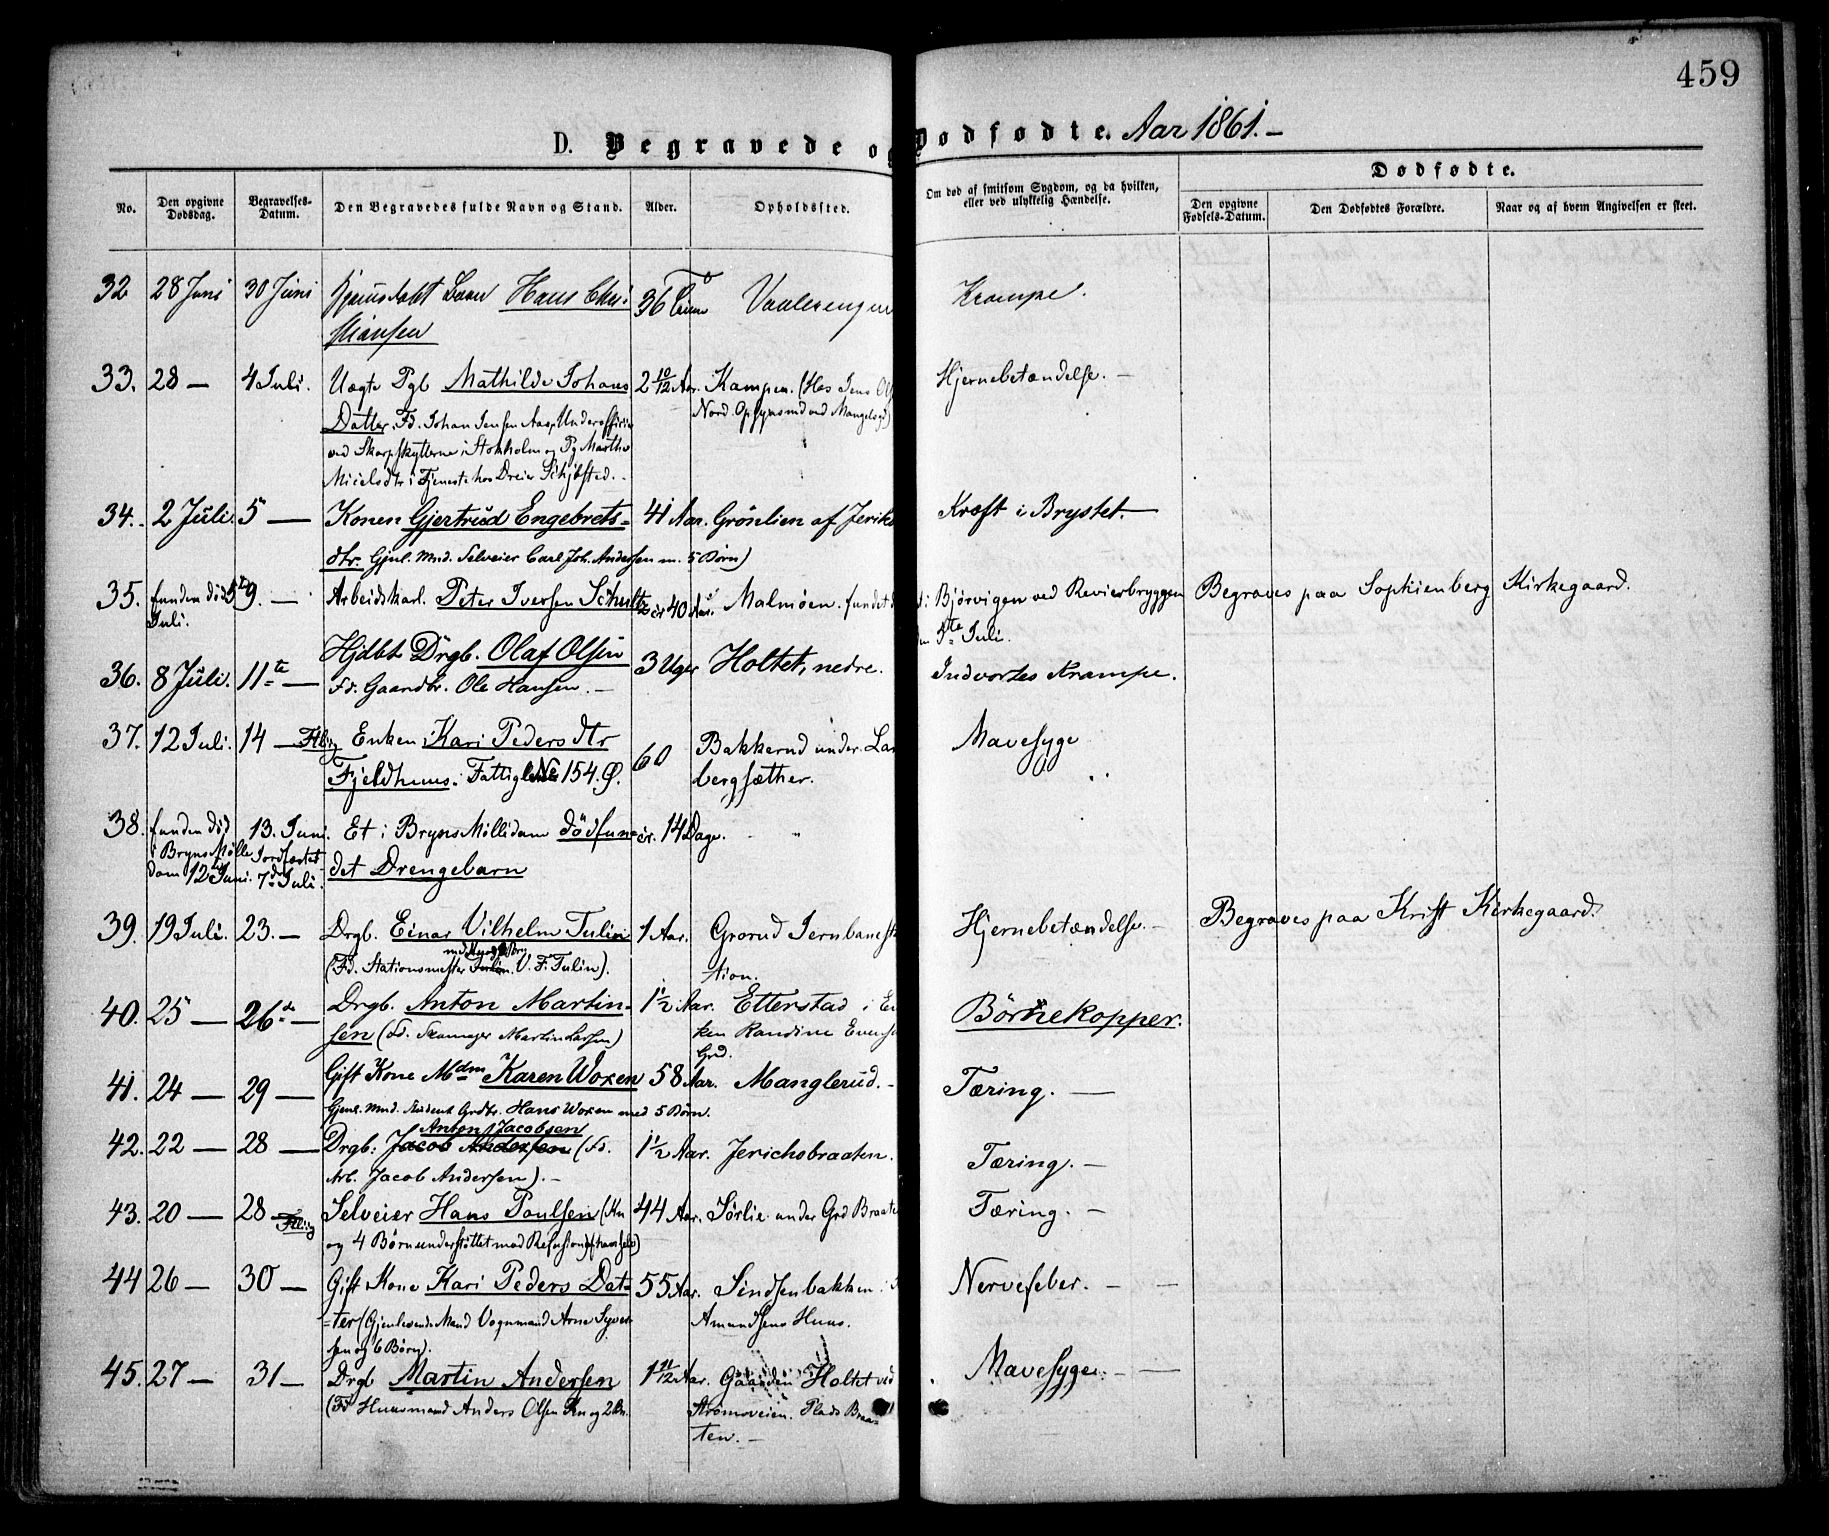 459
D. Begravede og Dødfødte. Aar 1861.-
No. Den opgivne Dødsdag. Begravelses-Datum. Den Begravedes fulde Navn og Stand. Alder. Opholdssted. Om død af smitsom Sygdom, og da hvilken, eller ved ulykkelig Hændelse. Dødfødte.
Den opgivne Fødsels-Datum. Den Dødfødtes Forældre. Naar og af hvem Angivelsen er skeet.
32 28 Juni 30 Juni Hjemmedøbt Søn Hans Chri- 36 Vaalerengen Krampe.
stiansen
33. 28 — 4 Juli. Uægte Pgb Mathilde Johans 2 10/12 Aar. Kampen. (Hos Jens Ol Hjernebetændelse. —
Datter. Fd. Johan Jensen Aas, Underofficier Nord. Opsynsmd ved Mangelsgd)
ved Skarpskytterne i Stokholm og Pg Marthe
Nicielsdtr i Tjeneste hos Dreier Schjøsted. -
34. - 2 Juli. 5 — Konen Gjertrud Engebrets- 41 Aar. Grønlien af Jeriko Kræft i Brystet. —
dtr. Gjenl. Mnd. Selveier Carl Joh. Andersen m. 5 Børn)
35. funden død 5te 9. — Arbeidskarl. Peter Iversen Schultz cir 40 Aar. Malmøen. fundet d i Bjørvigen ved Revierbryggen Begraves paa Sophienberg Kirkegaard.
Juli. 5te Juli.
36. 8 Juli. 11te — Hjdbt Drgb. Olaf Olsen 3 Uger Holtet, nedre. Indvortes Krampe.
Fd. Gaardbr. Ole Hansen. —
37. 12 Juli. 14 — Ftlig Enken Kari Pedersdtr 60 Bakkerud under Lam Mavesyge
Fjeldhuus. Fattiglem No 154. Ø. bergsæther.
38. funden død 13. Juni. Et i Bryns Mølledam dødfun- cir. 14 Dage. "
i Bryns Mølle Jordfæstet det Drengebarn
dam 12te Juni. 7de Juli.
39. 19 Juli. 23. — Drgb. Einar Vilhelm Tulin 1 Aar. Grorud Jernbanesta Hjernebetændelse. — Begraves paa Krist Kirkegaard.
(Fd. Stationsmester V. F. Tulin). tion.
40. 25 — 26de — Drgb. Anton Martin- 1½ Aar. Etterstad i En Børnekopper.
sen (Fd. Skomager Martin Larsen) ken Randine Evens
Grd.
41. 24 — 29 — Gift Kone Mdm Karen Woxen 58 Aar. Manglerud. - Tæring. —
Gjenl. Mnd. Student Grdbr. Hans Woxen med 5 Børn.
Anton Jacobsen
42. 22 — 28 — Drgb: Jacob Andersen (Fd. 1½ Aar. Jerichobraaten. Tæring. —
Arb. Jacob Andersen). -
43. 20 — 28 — Ftlig Selveier Hans Poulsen (Kn 44 Aar. Sørlie under Grd Braate Tæring. —
og 4 Børn understøttet mod Refusion
44 26 — 30 — Gift Kone Kari Peders Dat- 55 Aar. Sindsenbakken i Nervefeber. — —
ter (Gjenlevende Mand Vognmand Arne Syver- Amundsens Huus.
sen og 6 Børn).
45. 27 — 31 — Drgb Martin Andersen 1 11/12 Aar. Gaarden Holtet ved Mavesyge. — —
(Fd Huusmand Anders Olsen Kn og 2 Bn. Strømsveien. Plads Braa-
ten. —